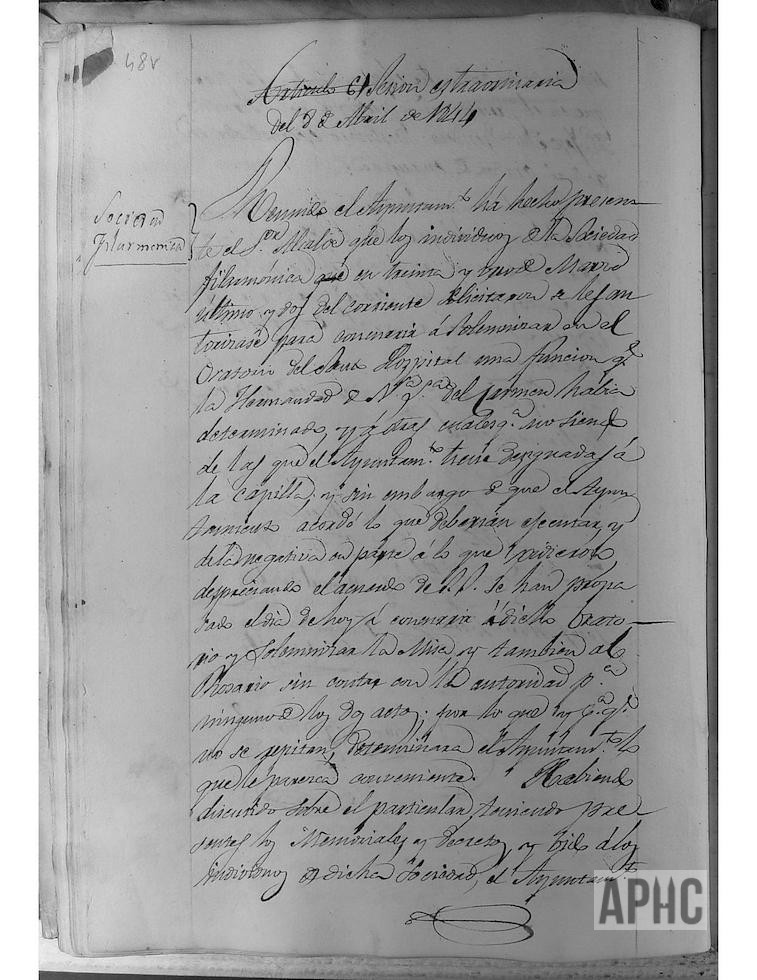 48v
Articulo 6 Sesion extraordinaria
del 8 de Abril de 1844
Sociedad
Filarmonica
Reunido el Ayuntam.to há hecho presen
te el S.or Alcalde que los individuos de la Sociedad
filarmonica que en treinta y uno de Marzo
ultimo y dos del corriente solicitaron se les au
torizase para concurrir á solemnizar en el
Oratorio del Santo Hospital una funcion q.e
la Hermandad de N.ra S.ra del Carmen habia
determinado, y á otras cualesq.a no siendo
de las que el Ayuntam.to tiene designadas á
la capilla; y sin embargo de que el Ayun
tamiento acordó lo que deberian ejecutar, y
de la negativa en parte á lo que pidieron
despreciando el acuerdo de se han propa
sado el dia de hoy á concurrir á dicho Orato
rio y solemnizar la Misa y tambien al
Rosario sin contar con la autoridad p.a
ninguno de los dos actos: por lo que y p.a q.e
no se repitan, determinara el Ayuntam.to lo
que le paresca conveniente. Habiendo
discutido sobre el particular teniendo pre
sentes los Memoriales y Decretos, y oido á los
individuos de dicha Sociedad, el Ayuntam.to
APHC